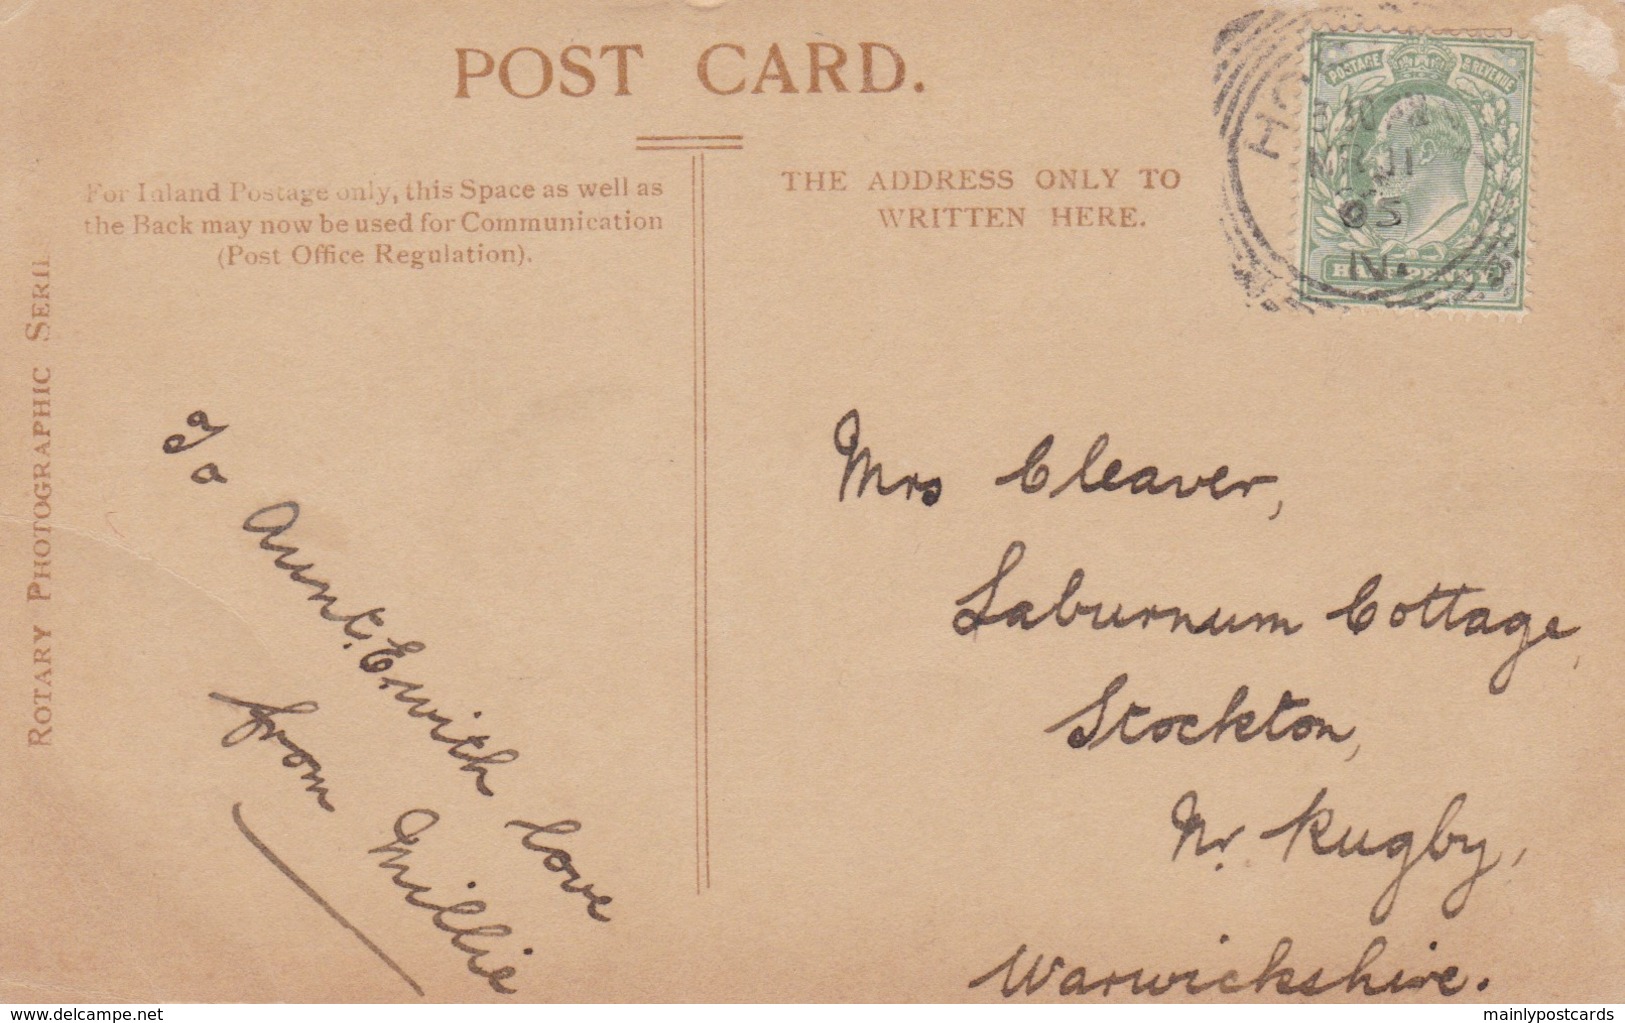 POST CARD.
For Inland Postage only, this Space as well as
the Back may now be used for Communication
(Post Office Regulation).
THE ADDRESS ONLY TO
WRITTEN HERE.
ROTARY PHOTOGRAPHIC
POSTAGE & REVENUE
HALFPENNY
05
N.
To
Aunt. E. with love
from Millie
Mrs Cleaver,
Laburnum Cottage,
Stockton,
Nr. Rugby,
Warwickshire.
delcampe.net
mainlypostcards